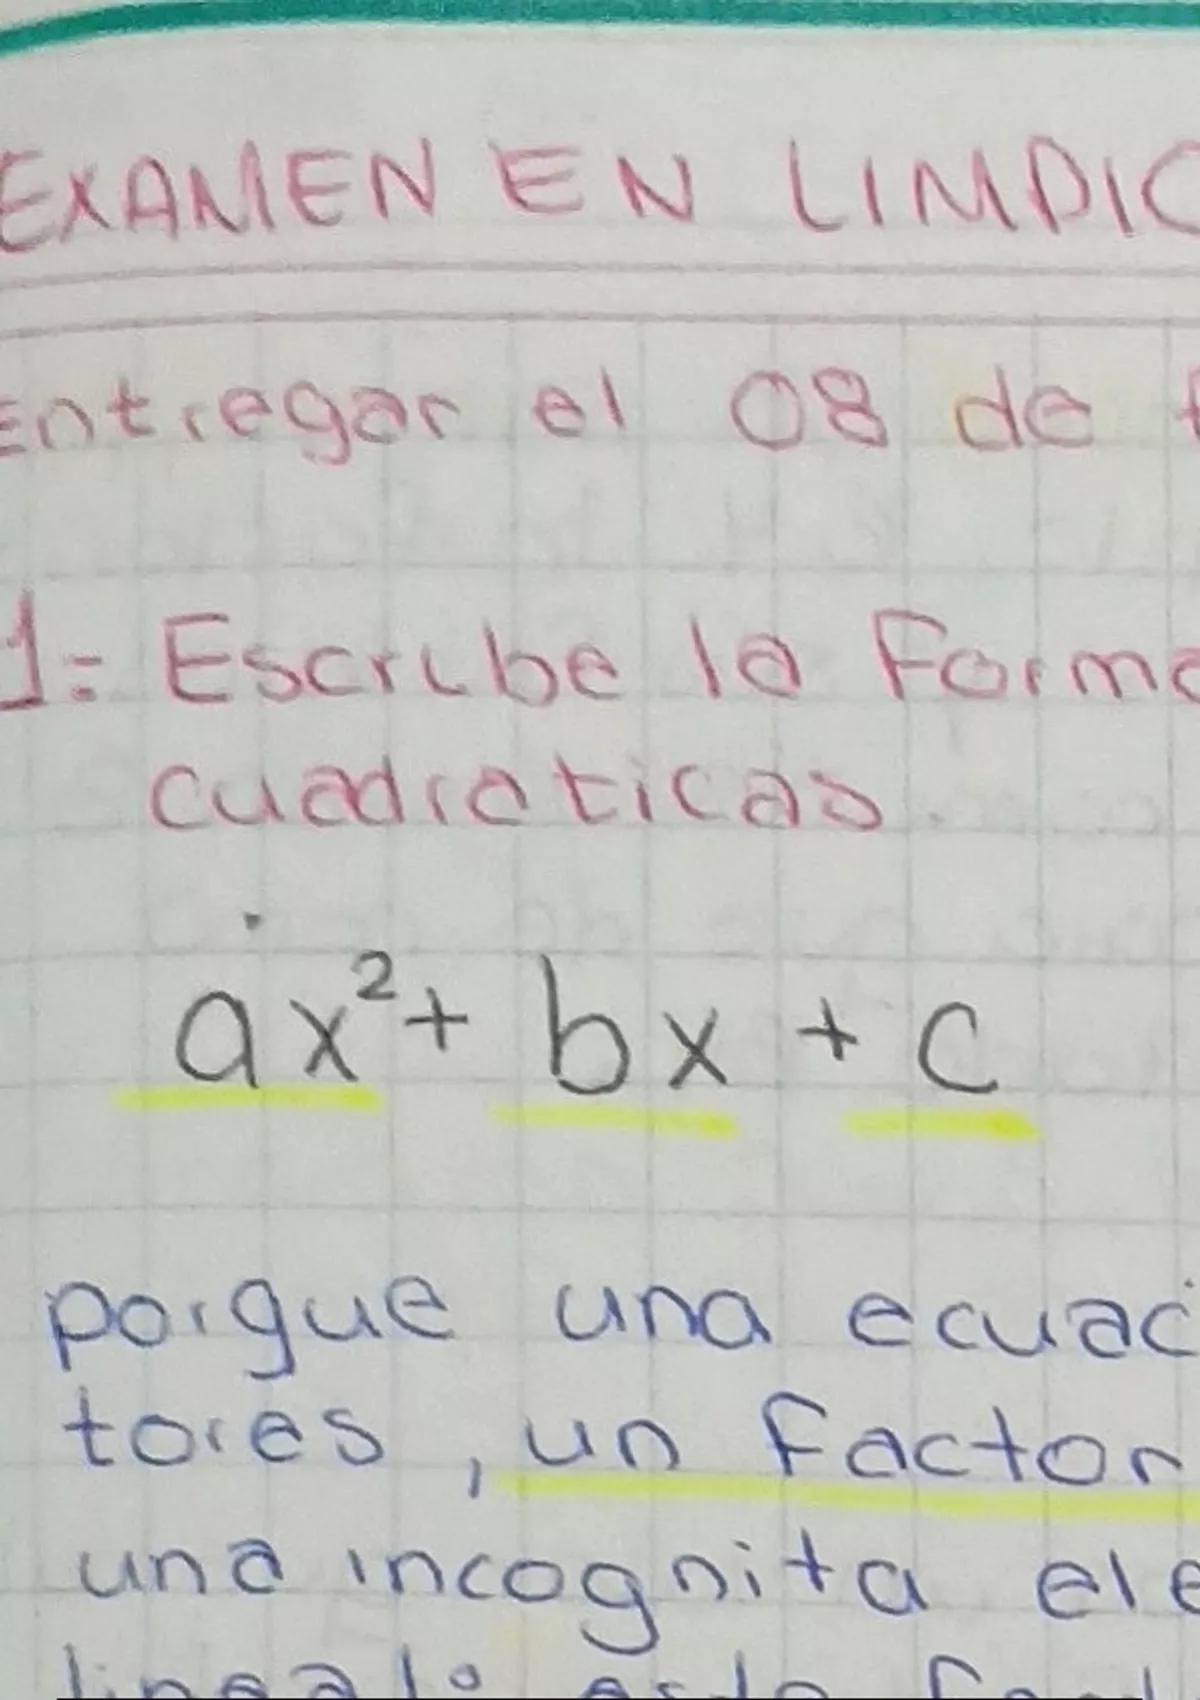 EXAMEN EN LIMPIO
Entregar el 08 de f
1= Escribe la forma
cuadraticas.
ax² + bx + c
porque una ecuac
tores, un factor
una incognita ele